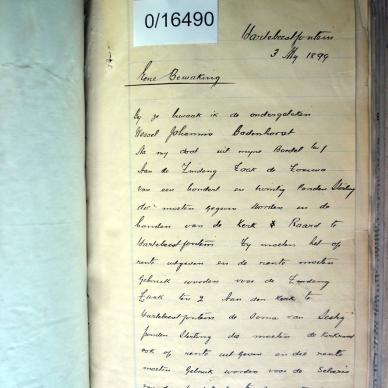 0/16490
Hartebeestfontein
3 My 1899
Eene Bewaking
By ze bewaak ik de ondergeteken
Gessel Johannis Badenhorst
Na my dood uit myne Boedel ten 1
Aan de Zending Zaak de Somma
van een hondert en twintig Ponden Sterling
die moeten gegeven worden en de
handen van de Kerk Raard te
Hartebeestfontein Zy moeten het op
rente uitgeven en de rente moeten
Gebruik worden voor de Zending
Zaak ten 2 Aan den Kerk te
Hartebeestfontein de Soma van Sestig
ponden Sterling die moeten de Kerkraad
ook op rente uit geven en die rente
moeten Gebruik worden voor de